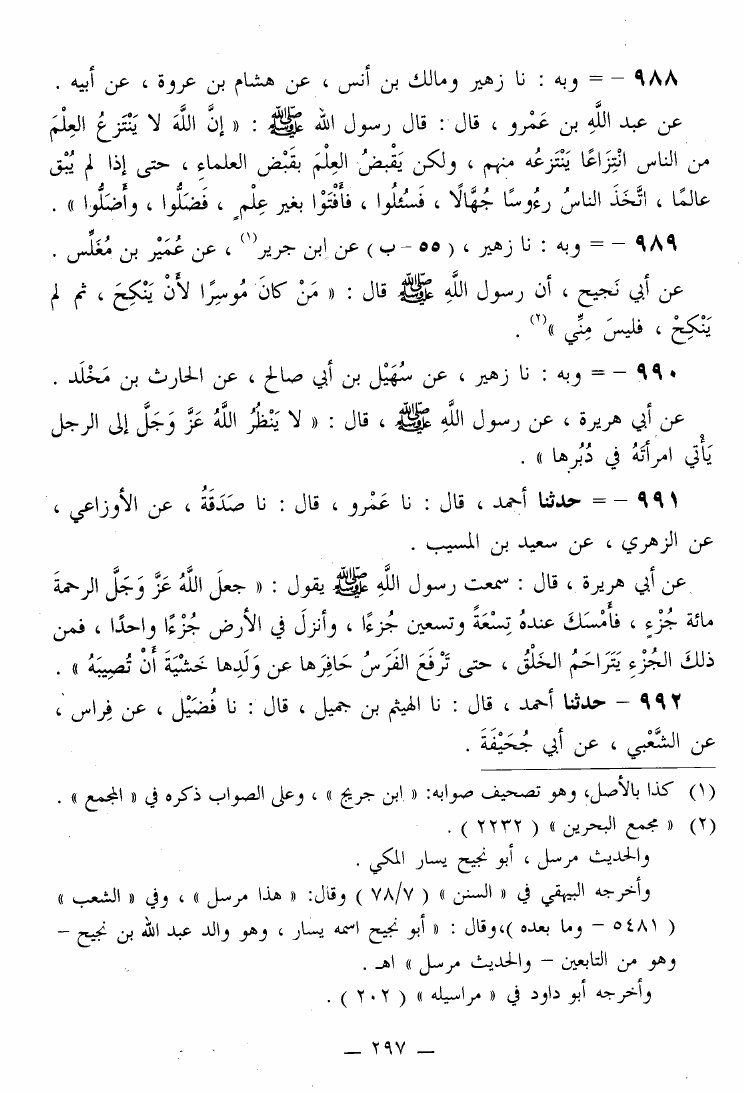 ٩٨٨ – = وبه : نا زهير ومالك بن أنس ، عن هشام بن عروة ، عن أبيه .
عن عبد اللَّهِ بن عَمْرو ، قال : قال رسول الله ﷺ : « إنَّ اللَّهَ لا يَنْتَزِعُ العِلْمَ
من الناس انْتِزَاعًا يَنْتَزعُه منهم ، ولكن يَقْبضُ العِلْمَ بقَبْض العلماءِ ، حتى إذا لم يُبْق
عالمًا ، اتَّخَذَ الناسُ رءُوسًا جُهَّالًا ، فَسُئلُوا ، فأَفْتَوْا بغير عِلْمٍ ، فَضَلُّوا ، وأَضَلُّوا » .
٩٨٩ – = وبه : نا زهير ، ( ٥٥ – ب ) عن ابن جرير(١) ، عن عُمَيْر بن مُغَلِّس .
عن أبي نَجيح ، أن رسول اللَّهِ ﷺ قال : « مَنْ كانَ مُوسِرًا لأَنْ يَنْكِحَ ، ثم لم
يَنْكِحْ ، فليسَ مِنِّي »(٢) .
٩٩٠ – = وبه : نا زهير ، عن سُهَيْل بن أبي صالح ، عن الحارث بن مَخْلَد .
عن أبي هريرة ، عن رسول اللَّهِ ﷺ ، قال : « لا يَنْظُرُ اللَّهُ عَزَّ وَجَلَّ إلى الرجل
يَأْتي امرأتَهُ في دُبُرها » .
٩٩١ – = حدثنا أحمد ، قال : نا عَمْرو ، قال : نا صَدَقَةُ ، عن الأوزاعي ،
عن الزهري ، عن سعيد بن المسيب .
عن أبي هريرة ، قال : سمعت رسول اللَّهِ ﷺ يقول : « جعلَ اللَّهُ عَزَّ وَجَلَّ الرحمةَ
مائة جُزْءٍ ، فأَمْسَكَ عندهُ تِسْعَةً وتسعين جُزءًا ، وأنزلَ في الأرض جُزْءًا واحدًا ، فمن
ذلكَ الجُزْءِ يَتَراحَمُ الخَلْقُ ، حتى تَرْفَعَ الفَرَسُ حَافِرَها عن وَلَدِها خَشْيَةَ أَنْ تُصِيبَهُ » .
٩٩٢ – حدثنا أحمد ، قال : نا الهيثم بن جميل ، قال : نا فُضَيْل ، عن فِراس ،
عن الشَّعْبي ، عن أبي جُحَيْفَةَ .
(١) كذا بالأصل، وهو تصحيف صوابه: « ابن جريج » ، وعلى الصواب ذكره في « المجمع » .
(٢) « مجمع البحرين » ( ٢٢٣٢ ) .
والحديث مرسل ، أبو نجيح يسار المكي .
وأخرجه البيهقي في « السنن » ( ٧٨/٧ ) وقال: « هذا مرسل » ، وفي « الشعب »
( ٥٤٨١ – وما بعده )،وقال : « أبو نجيح اسمه يسار ، وهو والد عبد الله بن نجيح –
وهو من التابعين – والحديث مرسل » اهـ .
وأخرجه أبو داود في « مراسيله » ( ٢٠٢ ) .
— ٢٩٧ —